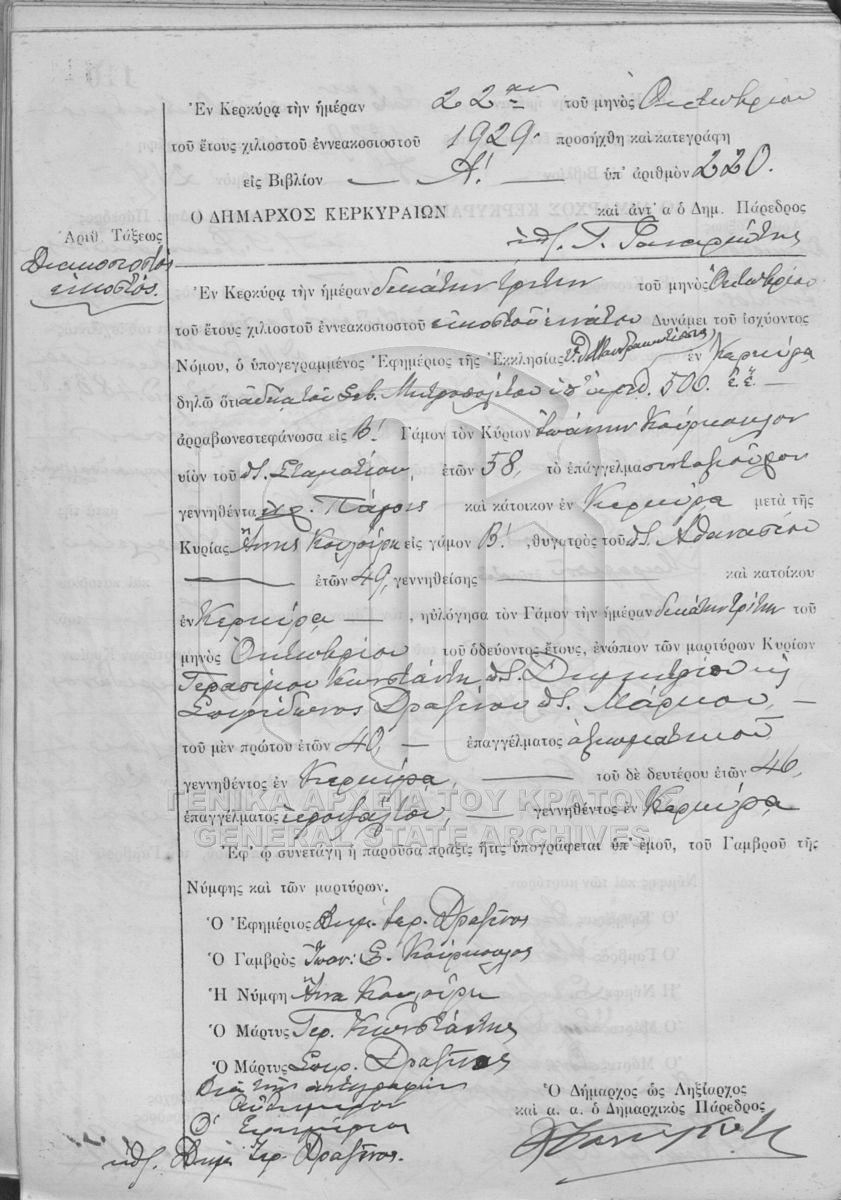 Ἐν Κερκύρᾳ τὴν ἡμέραν 22αν τοῦ μηνὸς Ὀκτωβρίου
τοῦ ἔτους χιλιοστοῦ ἐννεακοσιοστοῦ 1929. προσήχθη καὶ κατεγράφη
εἰς Βιβλίον — Α! — ὑπ' ἀριθμὸν 220.
Ο ΔΗΜΑΡΧΟΣ ΚΕΡΚΥΡΑΙΩΝ καὶ ἀντ' α ὁ Δημ. Πάρεδρος
Ἀριθ. Τάξεως
Διακοσιοστὸς
εἰκοστός.
Ἐν Κερκύρᾳ τὴν ἡμέραν δεκάτην τρίτην τοῦ μηνὸς Ὀκτωβρίου
τοῦ ἔτους χιλιοστοῦ ἐννεακοσιοστοῦ εἰκοστοῦ ἐνάτου Δυνάμει τοῦ ἰσχύοντος
Νόμου, ὁ ὑπογεγραμμένος Ἐφημέριος τῆς Ἐκκλησίας ἐν Κερκύρᾳ
δηλῶ ὅτι ἀδείᾳ τοῦ Σεβ. Μητροπολίτου ὑπ' ἀριθ. 500. ἔ.ἔ. —
ἀρραβωνεστεφάνωσα εἰς Β! Γάμον τὸν Κύριον Ἰωάννην Κούρκουλον
υἱὸν τοῦ Σταματίου, ἐτῶν 58, τὸ ἐπάγγελμα συνταξιοῦχον
γεννηθέντα Πάργης καὶ κάτοικον ἐν Κερκύρᾳ μετὰ τῆς
Κυρίας Ἄννης Κουλούρη εἰς γάμον Β! , θυγατρὸς τοῦ Ἀθανασίου
— ἐτῶν 49, γεννηθείσης — καὶ κατοίκου
ἐν Κερκύρᾳ — , ηὐλόγησα τὸν Γάμον τὴν ἡμέραν δεκάτην τρίτην τοῦ
μηνὸς Ὀκτωβρίου τοῦ ὁδεύοντος ἔτους, ἐνώπιον τῶν μαρτύρων Κυρίων
Γερασίμου Κωστάντη Δημητρίου κ
Σπυρίδωνος Δραζίνου Μάρκου, —
τοῦ μὲν πρώτου ἐτῶν 40, — ἐπαγγέλματος ἀξιωματικοῦ
γεννηθέντος ἐν Κερκύρᾳ, — τοῦ δὲ δευτέρου ἐτῶν 46,
ἐπαγγέλματος ἱεροψάλτου, — γεννηθέντος ἐν Κερκύρᾳ
ΓΕΝΙΚΑ ΑΡΧΕΙΑ ΤΟΥ ΚΡΑΤΟΥΣ
GENERAL STATE ARCHIVES
Ἐφ' ᾧ συνετάγη ἡ παροῦσα πρᾶξις ἥτις ὑπογράφεται ὑπ' ἐμοῦ, τοῦ Γαμβροῦ τῆς
Νύμφης καὶ τῶν μαρτύρων.
Ὁ Ἐφημέριος Δημ. Ἱερ. Δραζῖνος
Ὁ Γαμβρὸς Ἰωαν: Σ. Κούρκουλος
Ἡ Νύμφη Ἄννα Κουλούρη
Ὁ Μάρτυς Γερ. Κωστάντης
Ὁ Μάρτυς Σπυρ. Δραζῖνος
Διὰ τὴν ἀντιγραφὴν
Αὐθημερὸν
Ὁ Ἐφημέριος
Δημ. Ἱερ. Δραζῖνος.
Ὁ Δήμαρχος ὡς Ληξίαρχος
καὶ α. α. ὁ Δημαρχικὸς Πάρεδρος